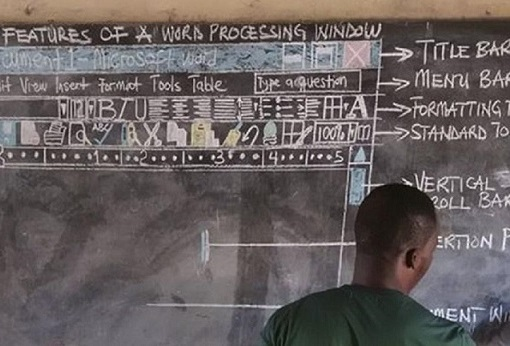 FEATURES OF A WORD PROCESSING WINDOW
cument 1 - Microsoft word
TITLE BAR
it View Insert Format Tools Table
Type a question
MENU BAR
B I U
A
FORMATTING T
100%
STANDARD TO
1 2 3 4 5
VERTICAL
ROLL BAR
ERTION P
MENT WI